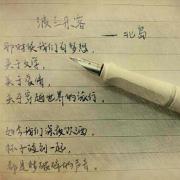 波兰来客
——北岛
那时候我们有梦想，
关于文学，
关于爱情，
关于穿越世界的旅行。
如今我们深夜饮酒，
杯子碰到一起，
都是梦破碎的声音。